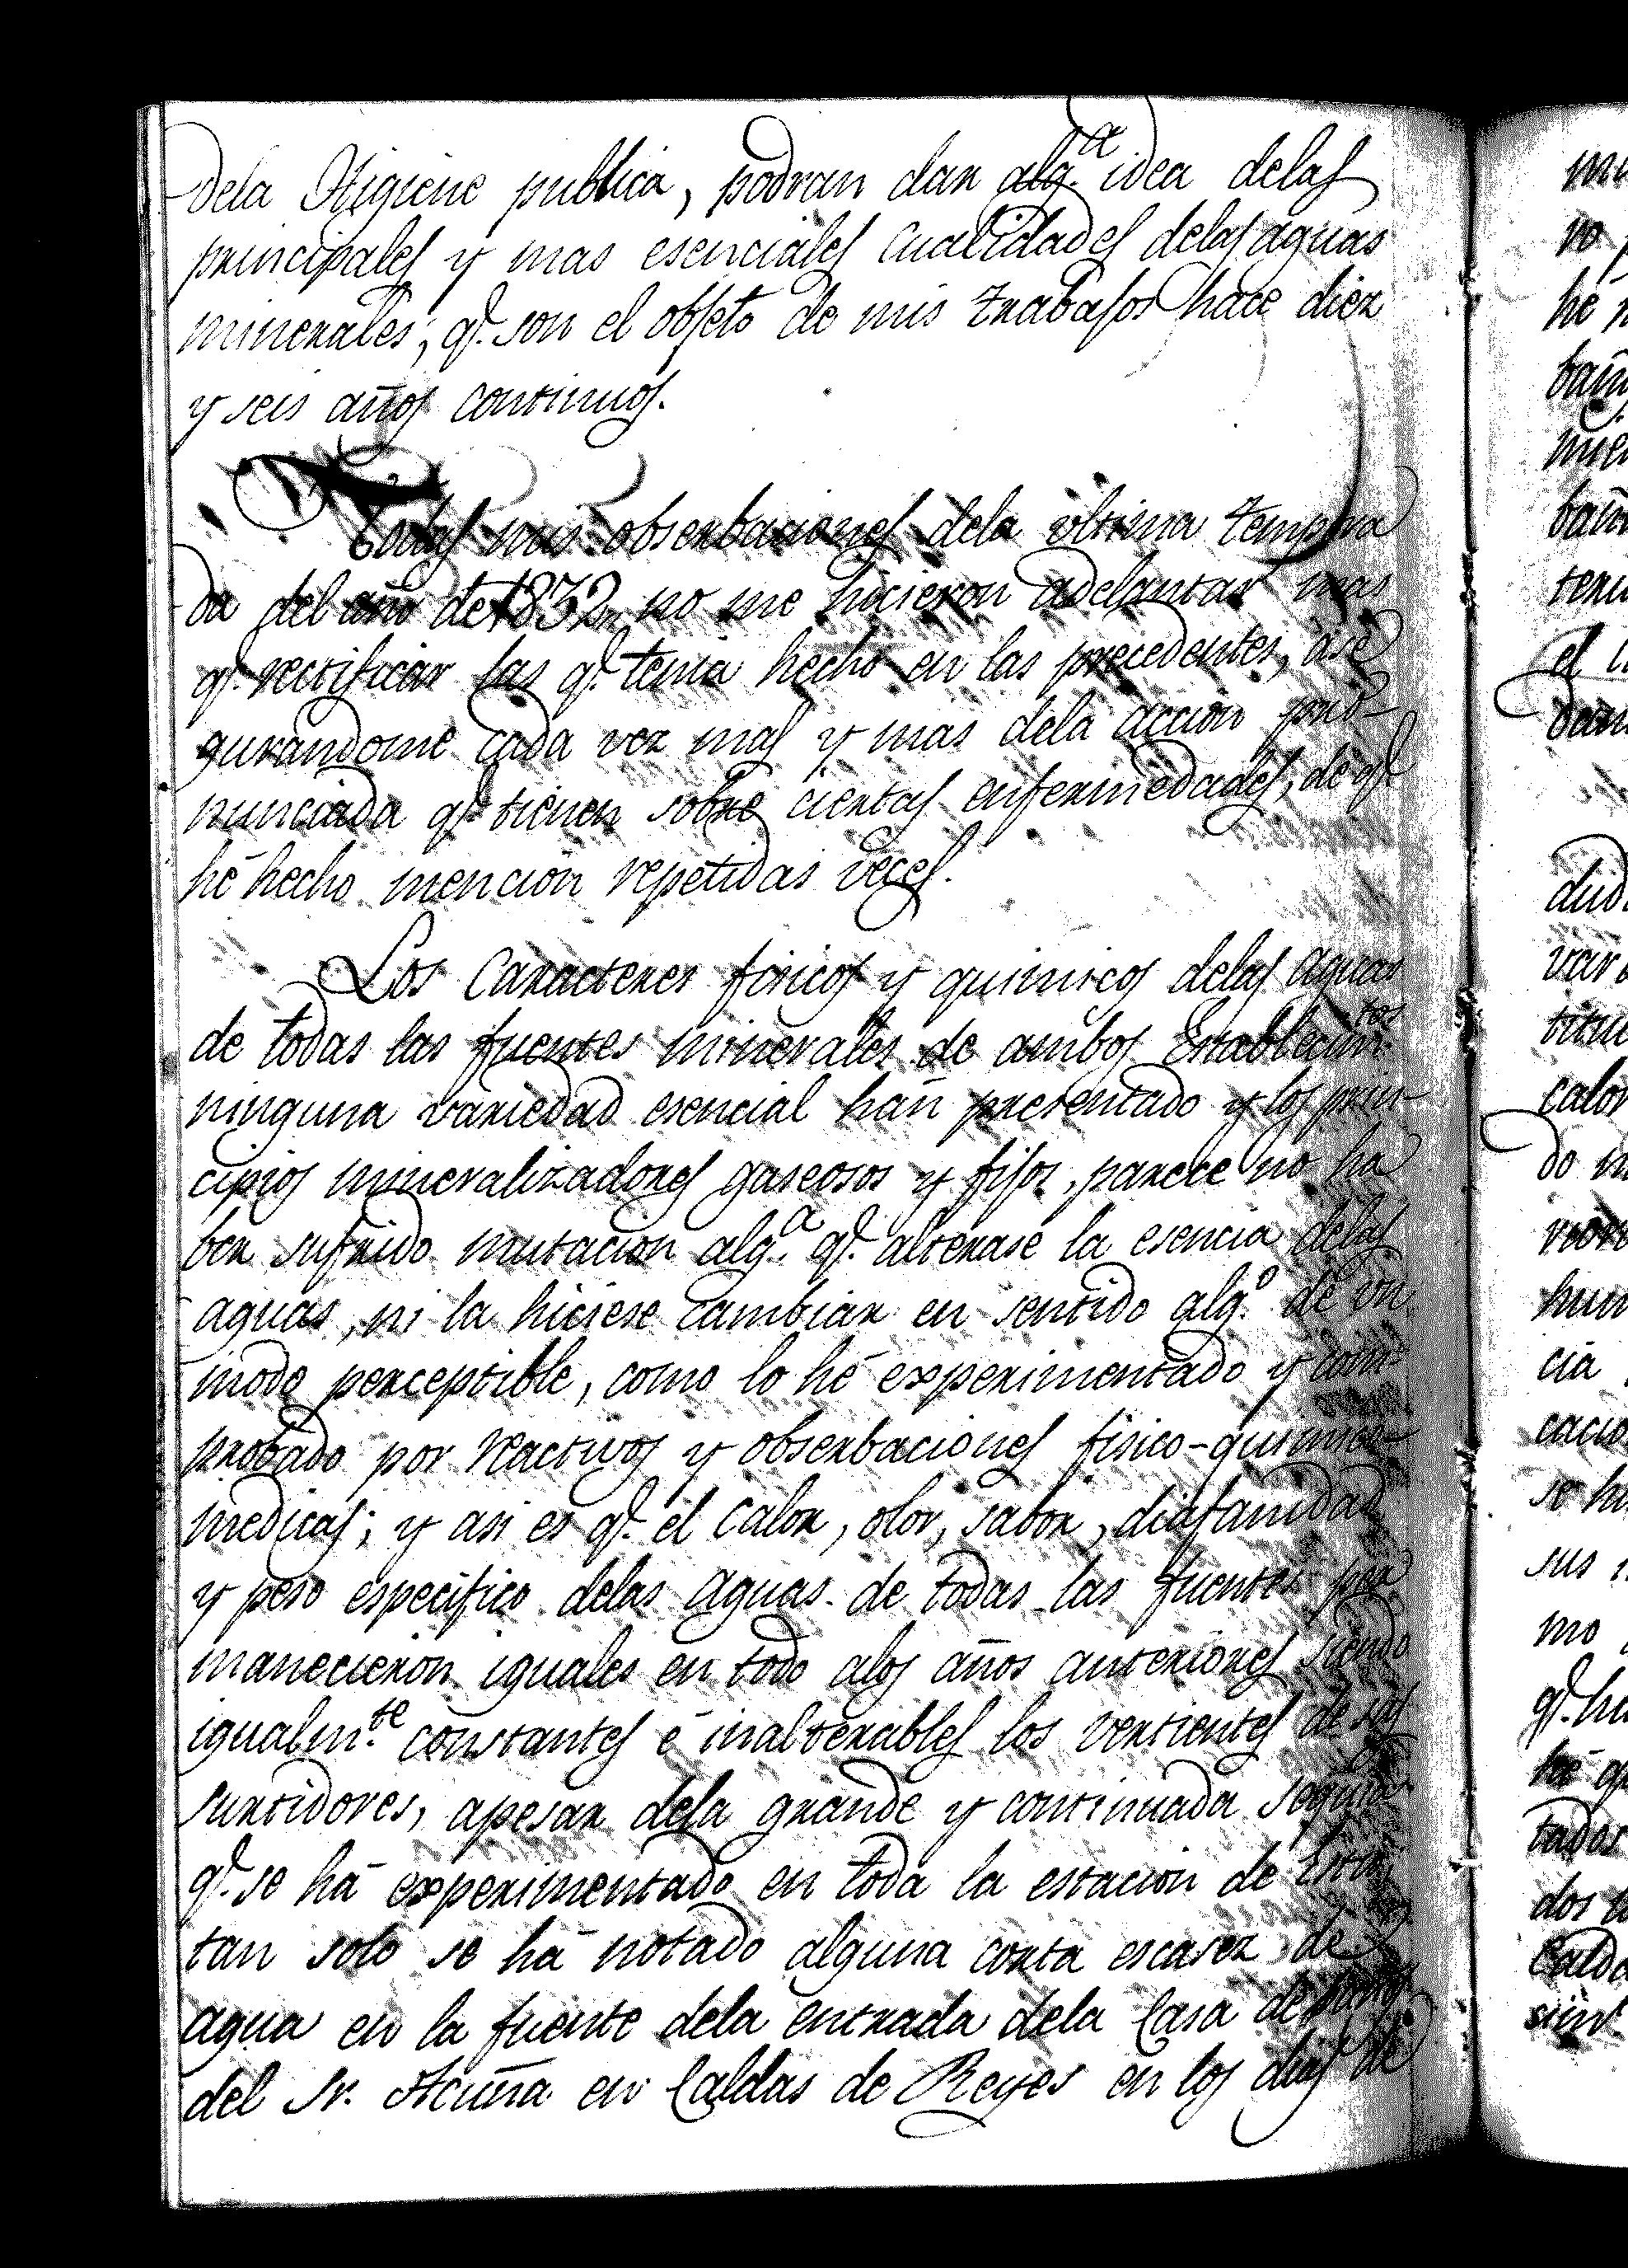 dela Higiene publica, podran dar alg.ª idea delas
principales y mas esenciales cualidades delas aguas
minerales; q.e son el objeto de mis trabajos hace diez
y seis años continuos.
Todas mis obserbaciones dela ultima tempora
da del año de 1832, no me hicieron adelantar mas
q.e rectificar las q.e tenia hecho en las precedentes, ase
gurandome cada vez mas y mas dela accion pro-
nunciada q.e tienen sobre ciertas enfermedades, de q.e
hé hecho mencion repetidas veces.
Los Caracteres fisicos y quimicos delas aguas
de todas las fuentes minerales de ambos Establecim.tos
ninguna variedad esencial hán presentado y los prin-
cipios mineralizadores gaseosos y fijos, parece no ha
ber sufrido mutacion alg.ª q.e alterase la esencia delas
aguas, ni la hiciese cambiar en sentido alg.º de un
modo perceptible, como lo hé experimentado y com-
probado por reactivos y obserbaciones fisico-quimico-
medicas; y asi es q.e el calor, olor, sabor, diafanidad
y peso especifico delas aguas de todas las fuentes per
manecieron iguales en todo alos años anteriores siendo
igualm.te constantes é inalterables los vertientes de sus
surtidores, apesar dela grande y continuada sequia
q.e se há experimentado en toda la estacion de Estio,
tan solo se há notado alguna corta escasez de
agua en la fuente dela entrada dela Casa de baños
del Sr. Acuña en Caldas de Reyes en los dias de